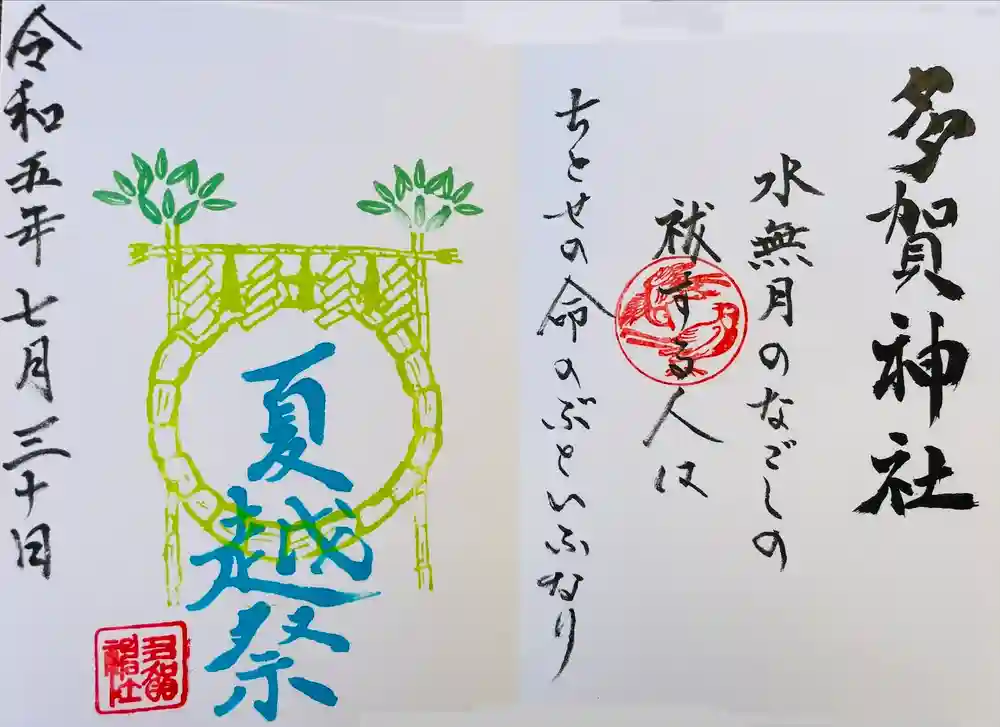 多賀神社
水無月のなごしの
祓する人は
ちとせの命のぶといふなり
夏越祭
令和五年 七月三十日
多賀神社